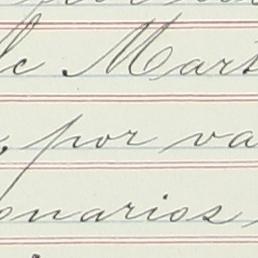 de Mart
, por va
onarios